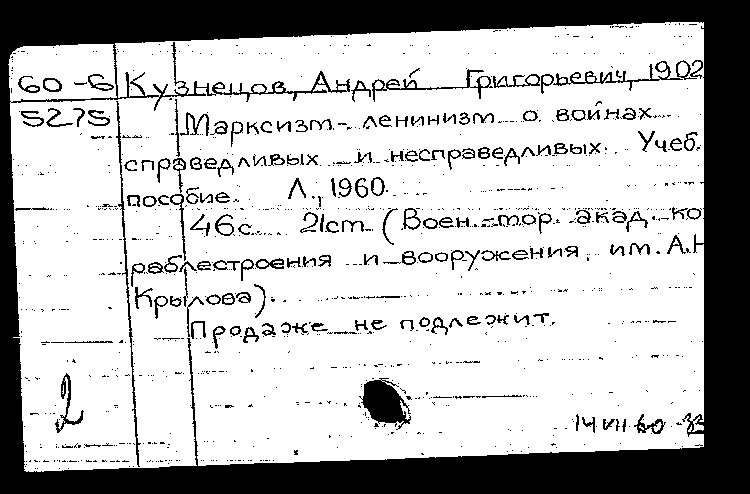 60-6 Кузнецов, Андрей Григорьевич, 1902
5275 Марксизм-ленинизм о войнах
справедливых и несправедливых. Учеб.
пособие. Л., 1960.
46с. 21cm (Воен.-мор. акад. ко
раблестроения и вооружения, им. А.Н
Крылова).
Продаже не подлежит.
2
14 VII 60